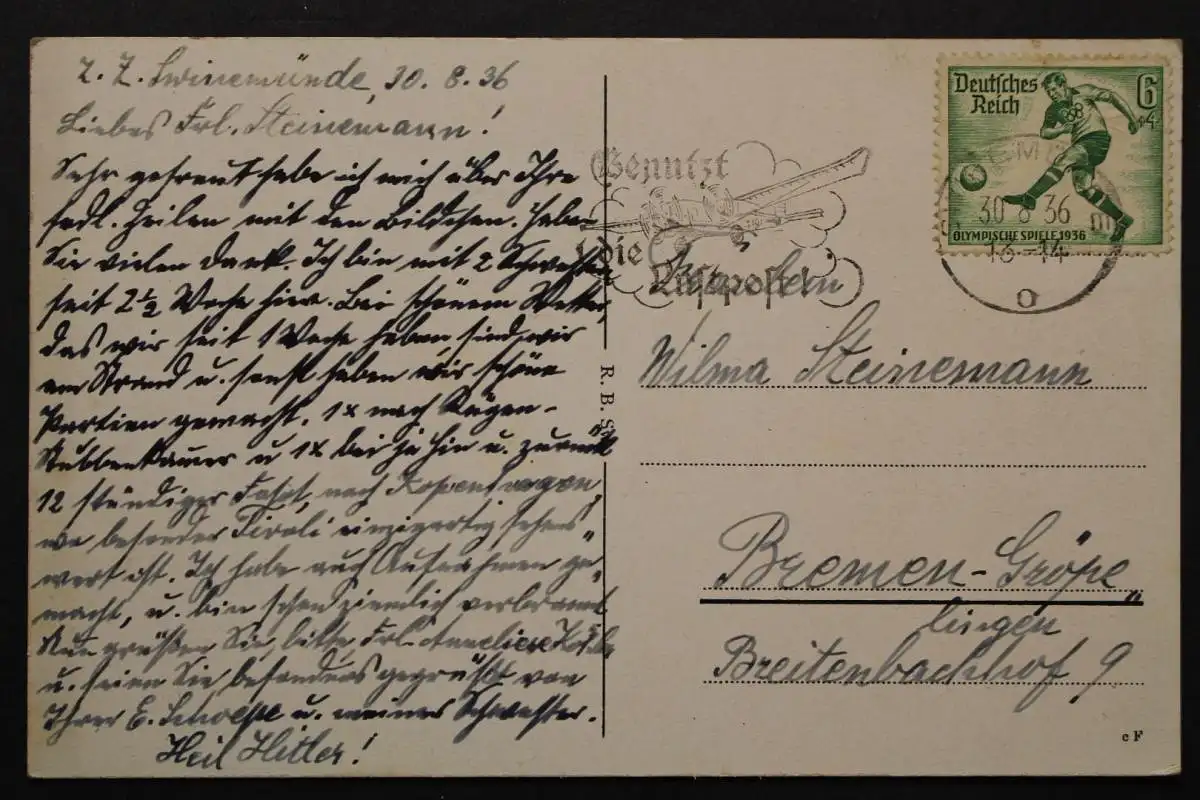 z. Z. Swinemünde, 30. 8. 36
Liebes Frl. Steinemann!
Sehr gefreut habe ich mich über Ihre
frdl. Zeilen mit den Bildchen. Haben
Sie vielen Dank. Ich bin mit 2 Schwestern
seit 2 1/2 Woche hier. Bei schönem Wetter,
das wir seit 1 Woche haben, sind wir
am Strand u. sonst haben wir schöne
Partien gemacht. 1x nach Rügen-
Stubbenkammer u 1x bei je hin u. zurück
12 stündiger Fahrt, nach Kopenhagen,
wo besonder Tivoli einzigartig sehens„
wert ist. Ich habe auch Aufnahmen ge„
macht, u. bin schon ziemlich verbrannt.
Nun grüßen Sie, bitte, Frl. Anneliese
u. seien Sie besonders gegrüßt von
Ihrer E. u. meiner Schwester.
Heil Hitler!
Benutzt
die
Luftpost
Deutsches
Reich
6
+4
OLYMPISCHE SPIELE 1936
30 8 36
13-14
m
o
Fräulein
Wilma Steinemann
Bremen-Gröpe„
lingen
Breitenbachhof 9
R. B. S.
c F